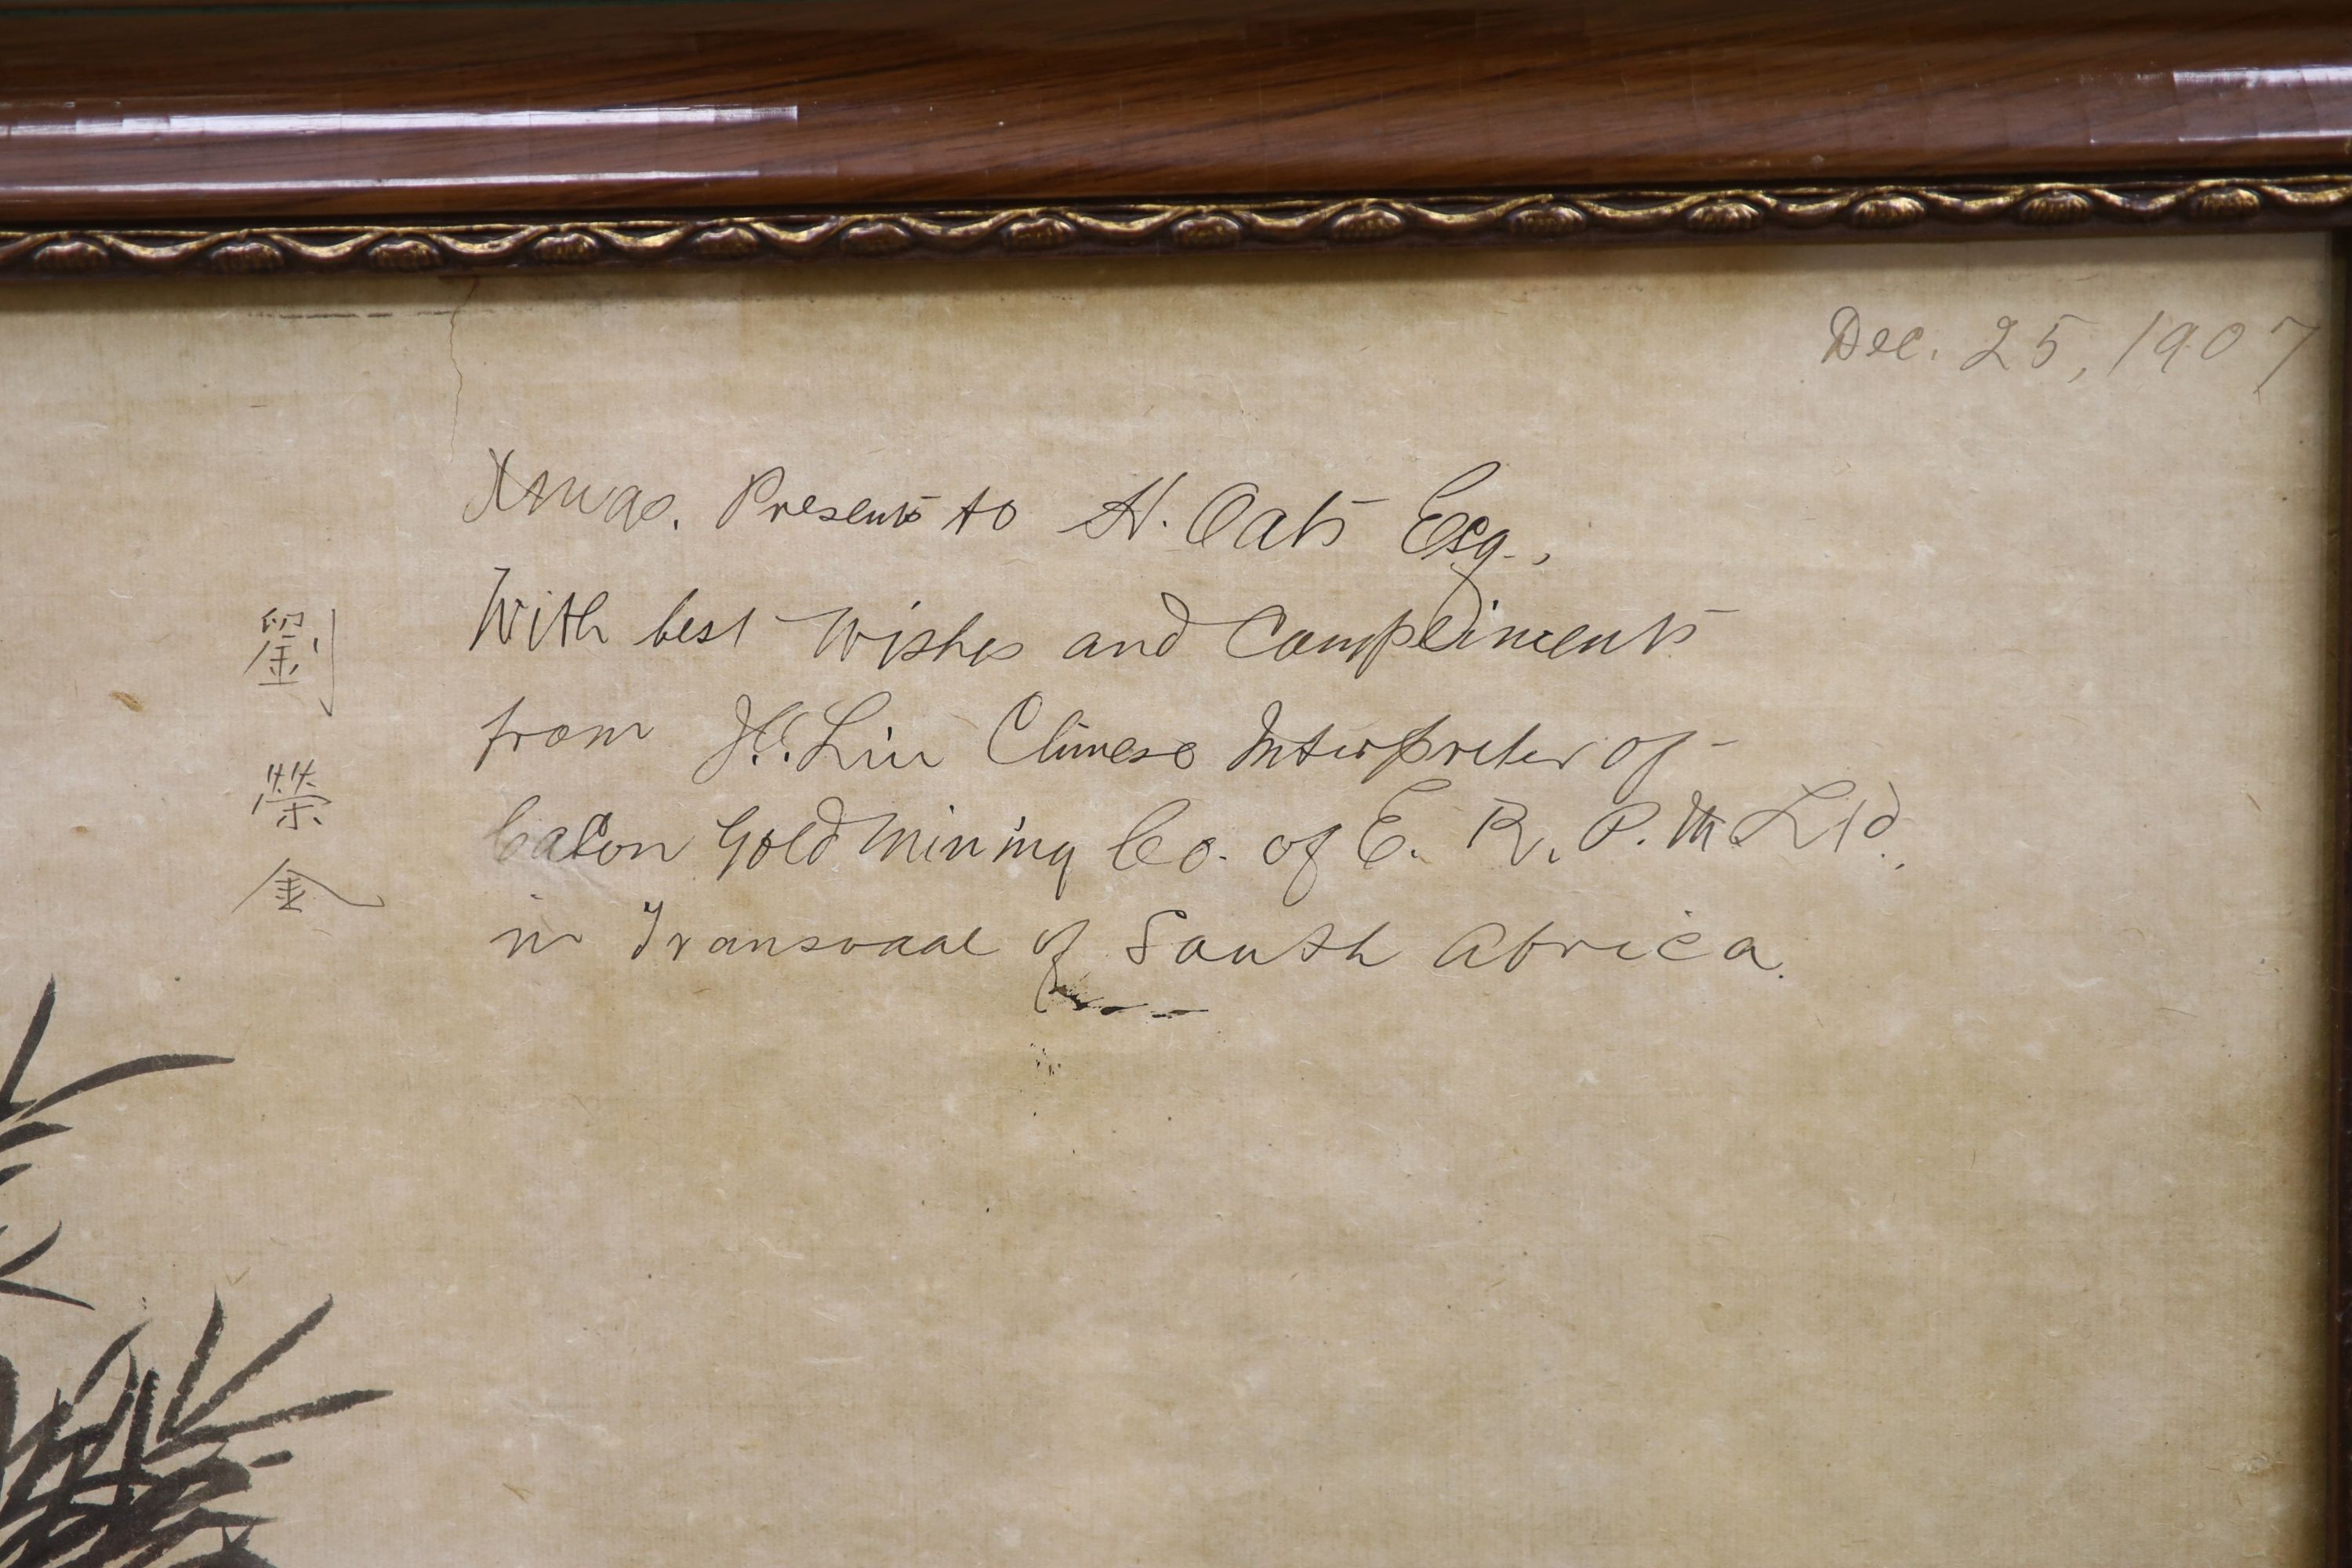 Dec. 25, 1907
Xmas. Presents to H. Oats Esq.,
With best Wishes and Compliments
from H. Liu Chinese Interpreter of
Gold Mining Co. of E. R. P. M Ltd.,
in Transvaal of South Africa.
劉榮金